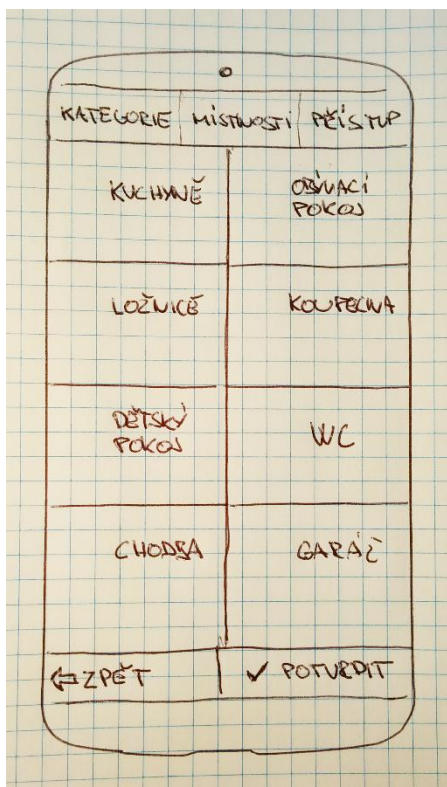 KATEGORIE MÍSTNOSTI PŘÍSTUP
KUCHYNĚ
OBÝVACÍ
POKOJ
LOŽNICE
KOUPELNA
DĚTSKÝ
POKOJ
WC
CHODBA
GARÁŽ
⇦ ZPĚT
✓ POTVRDIT